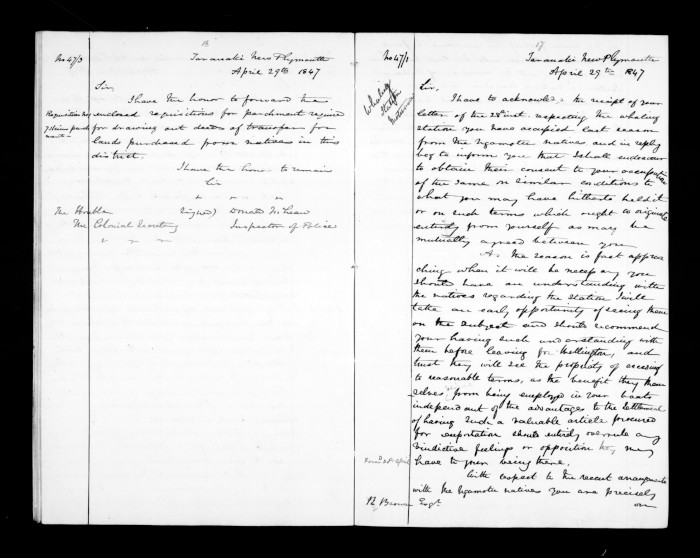 No 47/3
Taranaki New Plymouth
April 29th 1847
Sir,
I have the honor to forward the
enclosed requisitions for parchment required
for drawing out deeds of transfer for
lands purchased from natives in this
district.
I have the honor to remain
Sir
The Honble
The Colonial Secretary
Signed) Donald McLean
Inspector of Police
17
No 47/1
Taranaki New Plymouth
April 29th 1847
Whaling
Station
Sir,
I have to acknowledge the receipt of your
letter of the 28 inst. respecting the whaling
station you have occupied last season
from the Ngamotu natives and in reply
beg to inform you that I shall endeavour
to obtain their consent to your occupation
of the same on similar conditions to
what you may have hitherto held it
or on such terms which ought to originate
entirely from yourself as may be
mutually agreed between you
As the season is fast approa
ching when it will be necessary you
should have an understanding with
the natives regarding the station I will
take an early opportunity of seeing them
on the subject and should recommend
your having such understanding with
them before leaving for Wellington, and
trust they will see the propriety of acceding
to reasonable terms, as the benefit they them
selves from being employed in your boats
independent of the advantages to the settlement
of having such a valuable article procured
for exportation should entirely overrule any
vindictive feelings or opposition they may
have to your being there.
With respect to the recent arrangements
with the Ngamotu natives you are precisely
on
Brown Esqr.